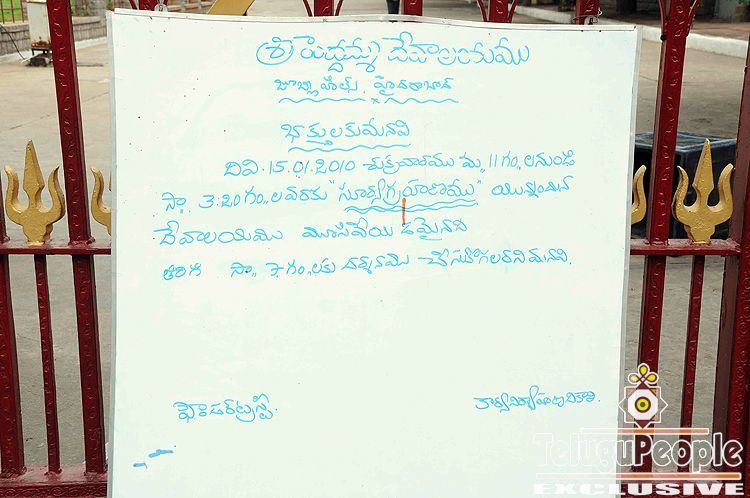 శ్రీ పెద్దమ్మ దేవాలయము
జూబ్లీ హిల్స్, హైదరాబాద్
భక్తులకు మనవి
దివి. 15.01.2010 శుక్రవారము మ. 11 గం,, లనుండి
సా. 3:20 గం,, లవరకు "సూర్యగ్రహణము"
దేవాలయము మూసివేయబడమైనది
తిరిగి సా,, 7 గం,, లకు దర్శనము చేసుకోగలరని మనవి.
ఫౌండర్ ట్రస్టీ.
కార్యనిర్వహణాధికారి.
TeluguPeople
EXCLUSIVE